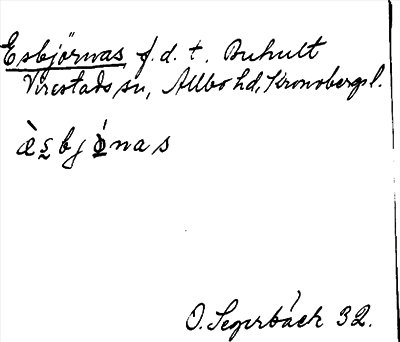 Esbjörnas f.d. t. Buhult
Virestads sn, Allbo hd, Kronobergs l.
æ̀s̲bjó̲nas
O. Segerbäck 32.